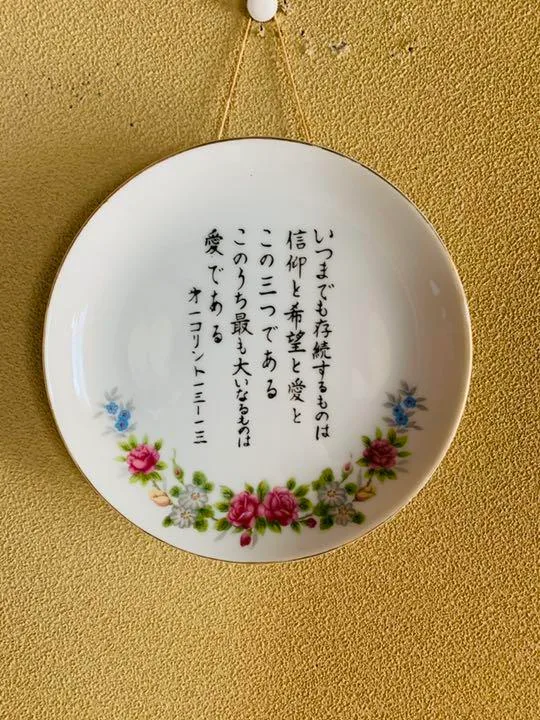 いつまでも存続するものは
信仰と希望と愛と
この三つである
このうち最も大いなるものは
愛である
才一コリント一三ー一三